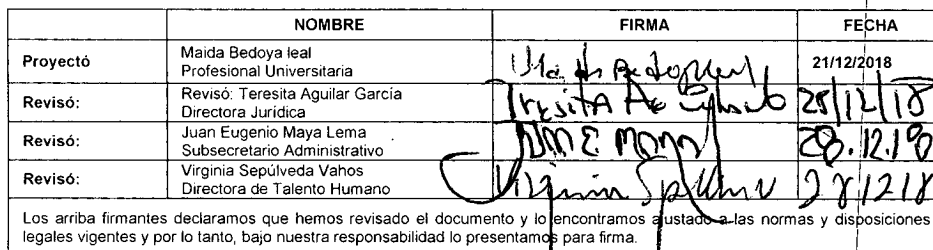 NOMBRE FIRMA FECHA
Proyectó Maida Bedoya leal
Profesional Universitaria 21/12/2018
Revisó: Revisó: Teresita Aguilar García
Directora Jurídica Teresita 28/12/18
Revisó: Juan Eugenio Maya Lema
Subsecretario Administrativo 28.12.18
Revisó: Virginia Sepúlveda Vahos
Directora de Talento Humano Virginia
Los arriba firmantes declaramos que hemos revisado el documento y lo encontramos ajustado a las normas y disposiciones
legales vigentes y por lo tanto, bajo nuestra responsabilidad lo presentamos para firma.